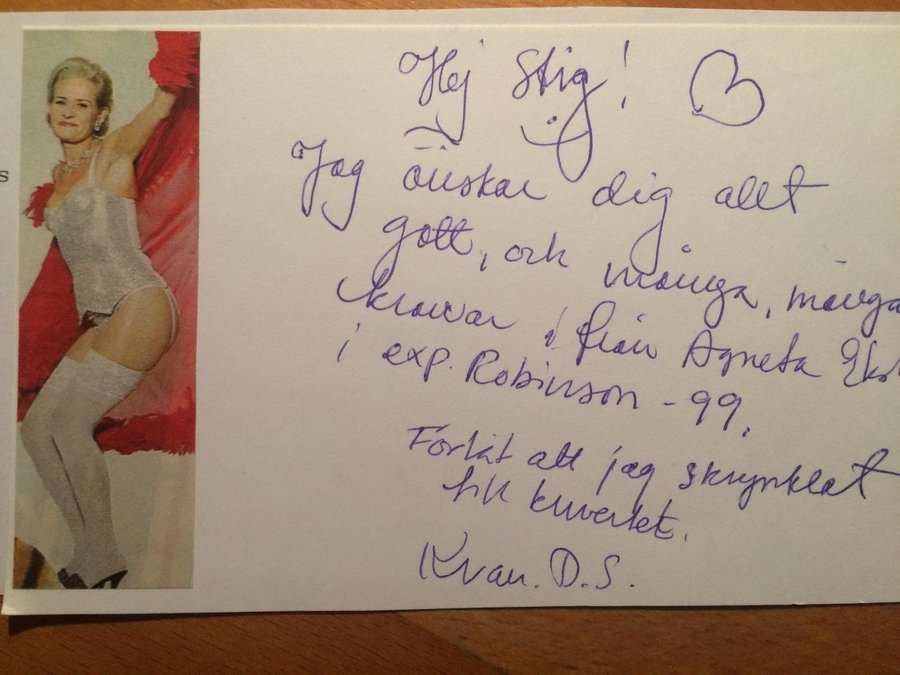 Hej Stig!
Jag önskar dig allt
gott, och många, många
kramar! från Agneta
i exp. Robinson -99.
Förlåt att jag skrynklat
till kuvertet.
Kram. D.S.
s